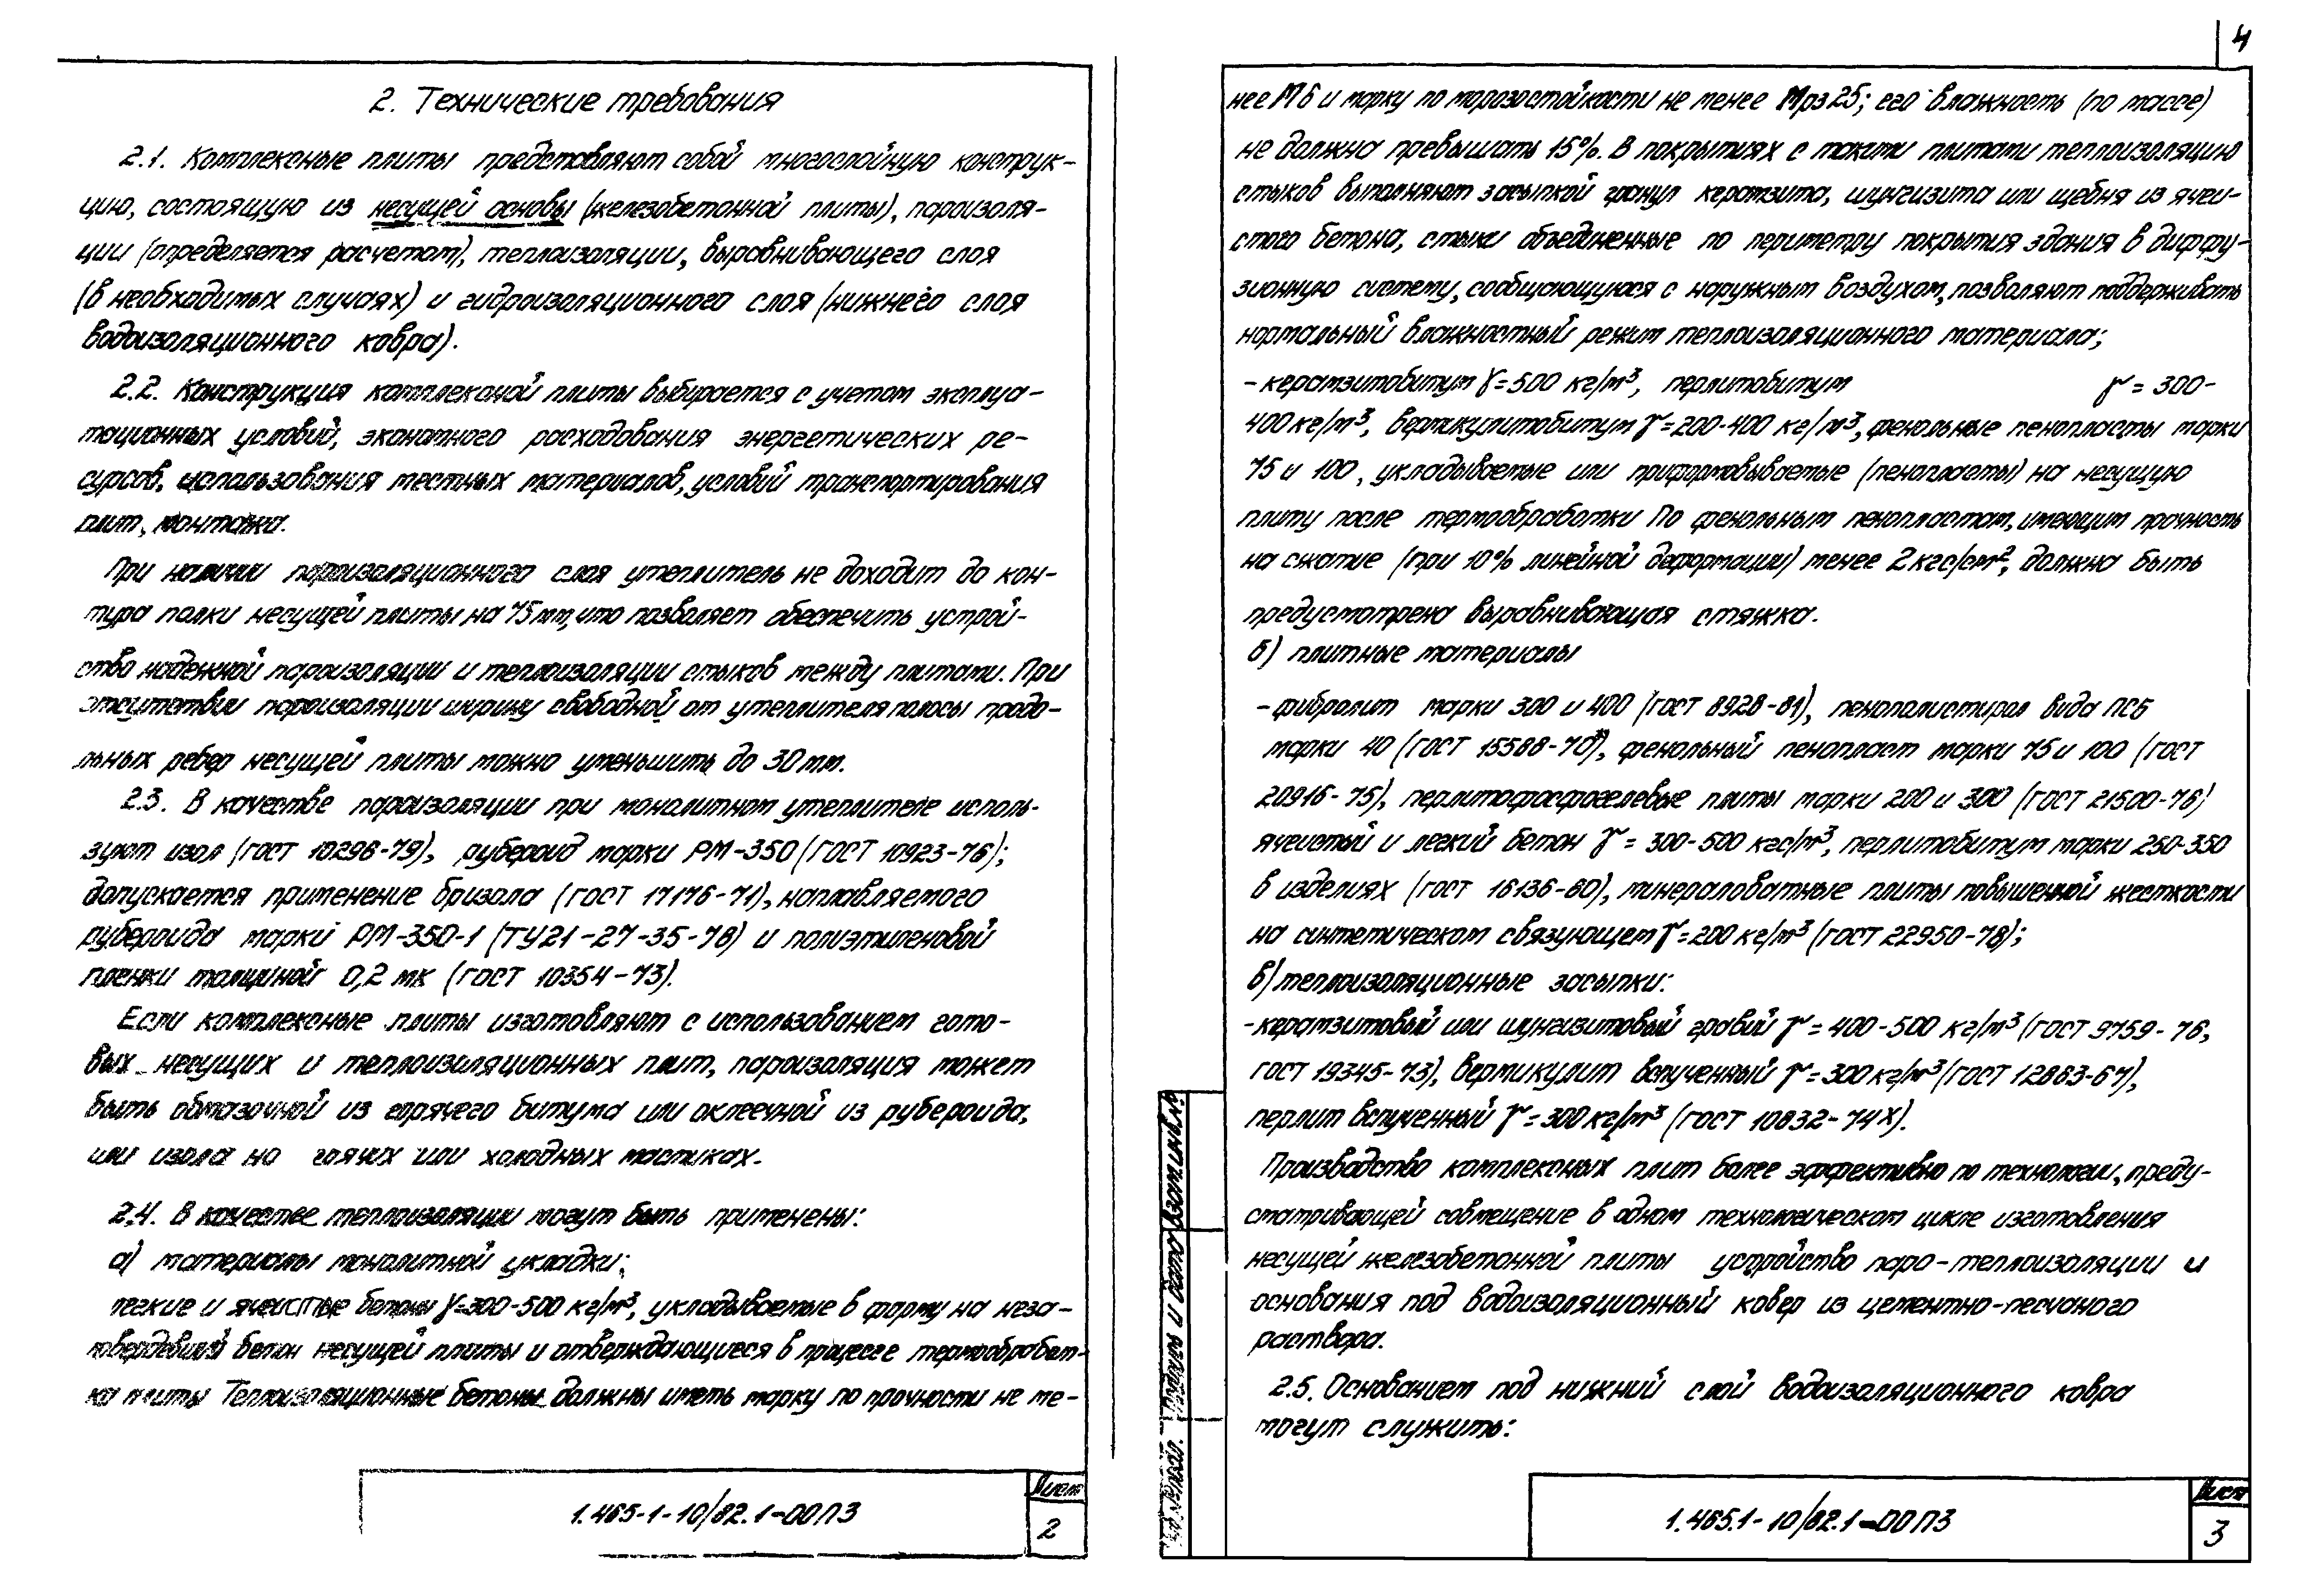 2. Технические требования
2.1. Комплексные плиты представляют собой многослойную конструк-
цию, состоящую из несущей основы (железобетонной плиты), пароизоля-
ции (определяется расчетом), теплоизоляции, выравнивающего слоя
(в необходимых случаях) и гидроизоляционного слоя (нижнего слоя
водоизоляционного ковра).
2.2. Конструкция комплексной плиты выбирается с учетом эксплуа-
тационных условий, экономного расходования энергетических ре-
сурсов, использования местных материалов, условий транспортирования
плит, монтажа.
При наличии пароизоляционного слоя утеплитель не доходит до кон-
тура полки несущей плиты на 75 мм, что позволяет обеспечить устрой-
ство надежной пароизоляции и теплоизоляции стыков между плитами. При
отсутствии пароизоляции ширину свободной от утеплителя полосы продо-
льных ребер несущей плиты можно уменьшить до 30 мм.
2.3. В качестве пароизоляции при монолитном утеплителе исполь-
зуют изол (ГОСТ 10296-79), рубероид марки РМ-350 (ГОСТ 10923-76);
допускается применение бризола (ГОСТ 17176-71), наплавляемого
рубероида марки РМ-350-1 (ТУ21-27-35-78) и полиэтиленовой
пленки толщиной 0,2 мк (ГОСТ 10354-73).
Если комплексные плиты изготовляют с использованием гото-
вых несущих и теплоизоляционных плит, пароизоляция может
быть обмазочной из горячего битума или оклеечной из рубероида,
или изола на гоячих или холодных мастиках.
2.4. В качестве теплоизоляции могут быть применены:
а) материалы монолитной укладки:
легкие и ячеистые бетоны γ=300-500 кг/м³, укладываемые в форму на неза-
твердевший бетон несущей плиты и отверждающиеся в процессе термообработ-
ки плиты Теплоизоляционные бетоны должны иметь марку по прочности не ме-
1.465-1-10/82.1-00ПЗ
Лист
2
4
нее М6 и марку по морозостойкости не менее Мрз25; его влажность (по массе)
не должна превышать 15%. В покрытиях с такими плитами теплоизоляцию
стыков выполняют засыпкой гранул керамзита, шунгизита или щебня из ячеи-
стого бетона, стыки объединенные по периметру покрытия здания в диффу-
зионную систему, сообщающуюся с наружным воздухом, позволяют поддерживать
нормальный влажностный режим теплоизоляционного материала;
-керамзитобитум γ=500 кг/м³, перлитобитум γ = 300-
400 кг/м³, вермикулитобитум γ=200-400 кг/м³, фенольные пенопласты марки
75 и 100, укладываемые или приформовываемые (пенопласты) на несущую
плиту после термообработки По фенольным пенопластам, имеющим прочность
на сжатие (при 10% линейной деформации) менее 2 кгс/см², должна быть
предусмотрена выравнивающая стяжка.
б) плитные материалы
-фибролит марки 300 и 400 (ГОСТ 8928-81), пенополистирол вида ПСБ
марки 40 (ГОСТ 15588-70*), фенольный пенопласт марки 75 и 100 (ГОСТ
20916-75), перлитофосфогелевые плиты марки 200 и 300 (ГОСТ 21500-76)
ячеистый и легкий бетон γ = 300-500 кгс/м³, перлитобитум марки 250-350
в изделиях (ГОСТ 16136-80), минераловатные плиты повышенной жесткости
на синтетическом связующем γ=200 кг/м³ (ГОСТ 22950-78);
в) теплоизоляционные засыпки:
-керамзитовый или шунгизитовый гравий γ = 400-500 кг/м³ (ГОСТ 9759-76,
ГОСТ 19345-73), вермикулит вспученный γ=300 кг/м³ (ГОСТ 12863-67),
перлит вспученный γ=300 кг/м³ (ГОСТ 10832-74Х).
Производство комплексных плит более эффективно по технологии, преду-
сматривающей совмещение в одном технологическом цикле изготовления
несущей железобетонной плиты устройство паро-теплоизоляции и
основания под водоизоляционный ковер из цементно-песчаного
раствора.
2.5. Основанием под нижний слой водоизоляционного ковра
могут служить:
Взам.инв.№
Подпись и дата
Инв.№подл.
1.465.1-10/82.1-00ПЗ
Лист
3